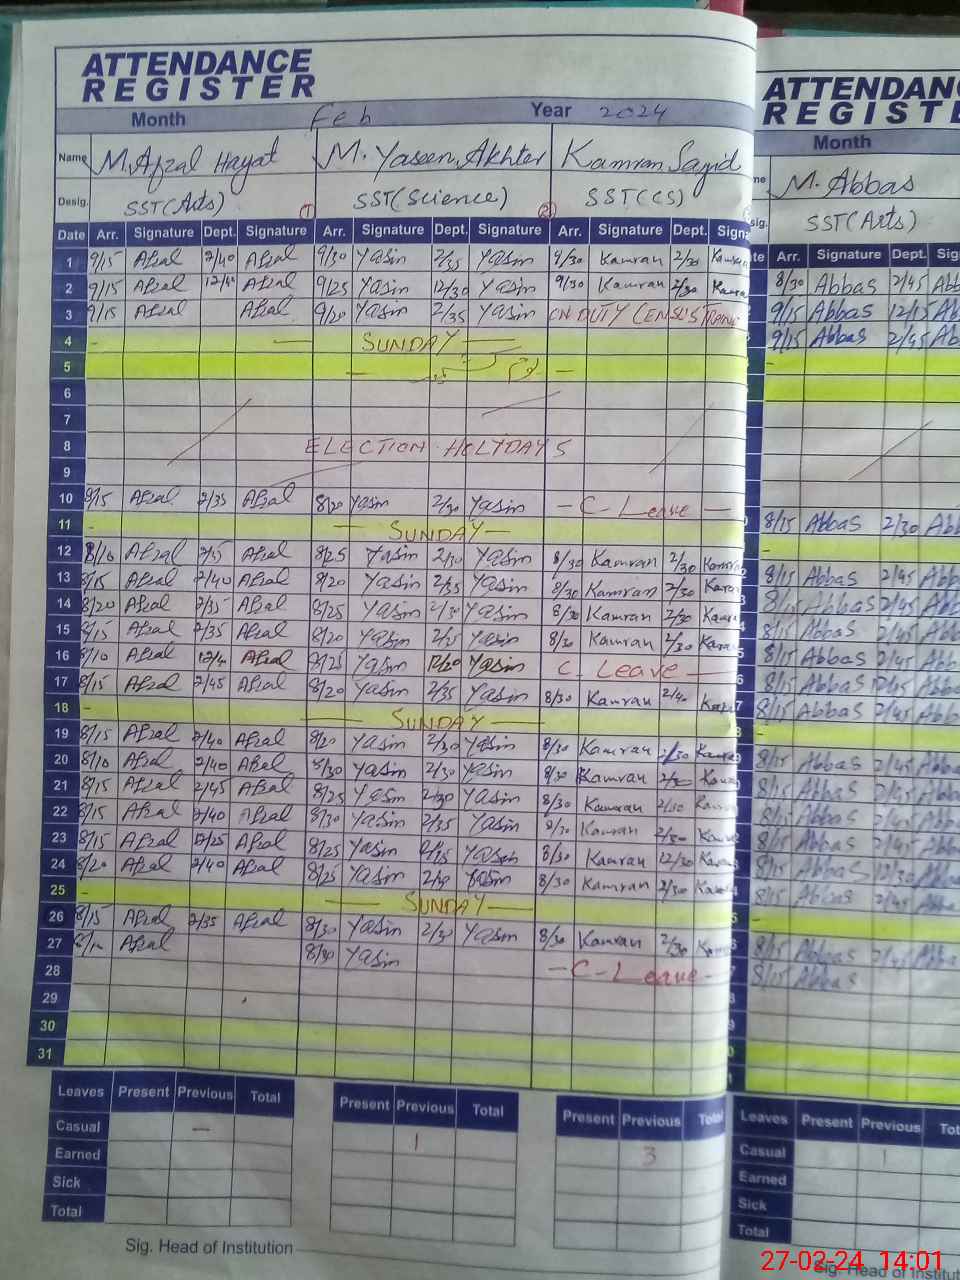 ATTENDANCE
REGISTER
Month Feb Year 2024
Name M. Afzal Hayat M. Yaseen Akhter Kamran Sayid
Desig. SST(Arts) 1 SST(Science) 2 SST(CS)
Date Arr. Signature Dept. Signature Arr. Signature Dept. Signature Arr. Signature Dept. Signa
1 9/15 Afzal 2/40 Afzal 9/30 Yasin 2/35 Yasin 9/30 Kamran 2/30 Kamran
2 9/15 Afzal 12/40 Afzal 9/25 Yasin 12/30 Yasin 9/30 Kamran 2/30 Kamra
3 9/15 Afzal Afzal 9/20 Yasin 2/35 Yasin ON DUTY CENSUS
4 - SUNDAY -
5
6
7
8 ELECTION HOLYDAYS
9
10 8/15 Afzal 2/35 Afzal 8/20 Yasin 2/30 Yasin - C - Leave -
11 - SUNDAY -
12 8/10 Afzal Afzal 8/25 Yasin 2/30 Yasin 8/30 Kamran 2/30 Kamran
13 8/15 Afzal 2/40 Afzal 8/20 Yasin 2/35 Yasin 8/30 Kamran 2/30 Kamr
14 8/20 Afzal 2/35 Afzal 8/25 Yasin 2/30 Yasin 8/30 Kamran 2/30 Kamra
15 8/15 Afzal 2/35 Afzal 8/20 Yasin 2/25 Yasin 8/30 Kamran 2/30 Kamra
16 8/10 Afzal 12/40 Afzal 8/25 Yasin 12/30 Yasin C. Leave -
17 8/15 Afzal 2/45 Afzal 8/20 Yasin 2/35 Yasin 8/30 Kamran 2/40
18 - SUNDAY -
19 8/15 Afzal 2/40 Afzal 8/20 Yasin 2/30 Yasin 8/30 Kamran 2/30 Kamran
20 8/10 Afzal 2/40 Afzal 8/30 Yasin 2/30 Yasin 8/30 Kamran 2/30
21 8/15 Afzal 2/45 Afzal 8/25 Yasin 2/30 Yasin 8/30 Kamran 2/30
22 8/15 Afzal 2/40 Afzal 8/30 Yasin 2/35 Yasin 8/30 Kamran 2/30
23 8/15 Afzal 12/25 Afzal 8/25 Yasin Yasin 8/30 Kamran 12/30
24 8/20 Afzal 2/40 Afzal 8/25 Yasin Yasin 8/30 Kamran 2/30
25 - SUNDAY -
26 8/15 Afzal 2/35 Afzal 8/30 Yasin 2/30 Yasin 8/30 Kamran 2/30
27 Afzal 8/30 Yasin - C - Leave -
28
29
30
31
Leaves Present Previous Total Present Previous Total Present Previous Total
Casual - 1 3
Earned
Sick
Total
Sig. Head of Institution
ATTENDANC
REGISTE
Month
me M. Abbas
sig. SST(Arts)
te Arr. Signature Dept. Sig
8/30 Abbas 2/45 Abb
9/15 Abbas 12/15 Ab
9/15 Abbas 2/45 Ab
8/15 Abbas 2/30 Ab
8/15 Abbas 2/45 Abb
8/15 Abbas 2/45 Abb
8/15 Abbas 2/45
8/15 Abbas 2/45
8/15 Abbas
8/15 Abbas 2/45
8/15 Abbas 2/45
8/15 Abbas
8/15 Abbas
8/15 Abbas
8/15 Abbas 12/30 Abba
8/15 Abbas 2/45 Abba
8/15 Abbas
8/15 Abbas
Leaves Present Previous Tot
Casual 1
Earned
Sick
Total
Sig. Head of Institut
27-02-24 14:01